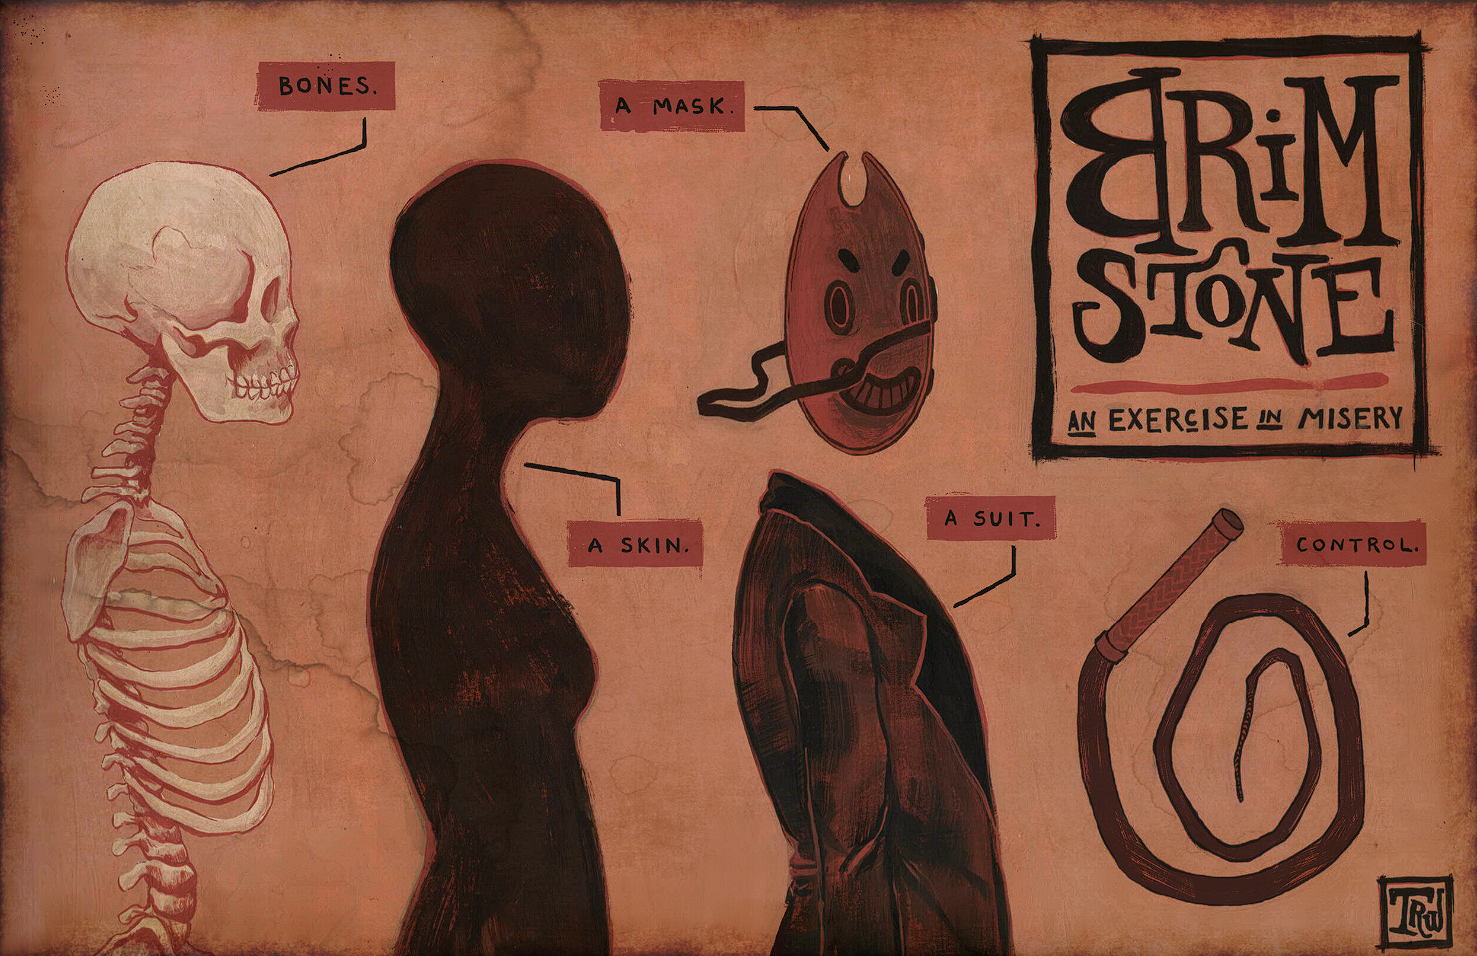 BONES.
A MASK.
BRiM
STONE
AN EXERCISE IN MISERY
A SKIN.
A SUIT.
CONTROL.
TRW